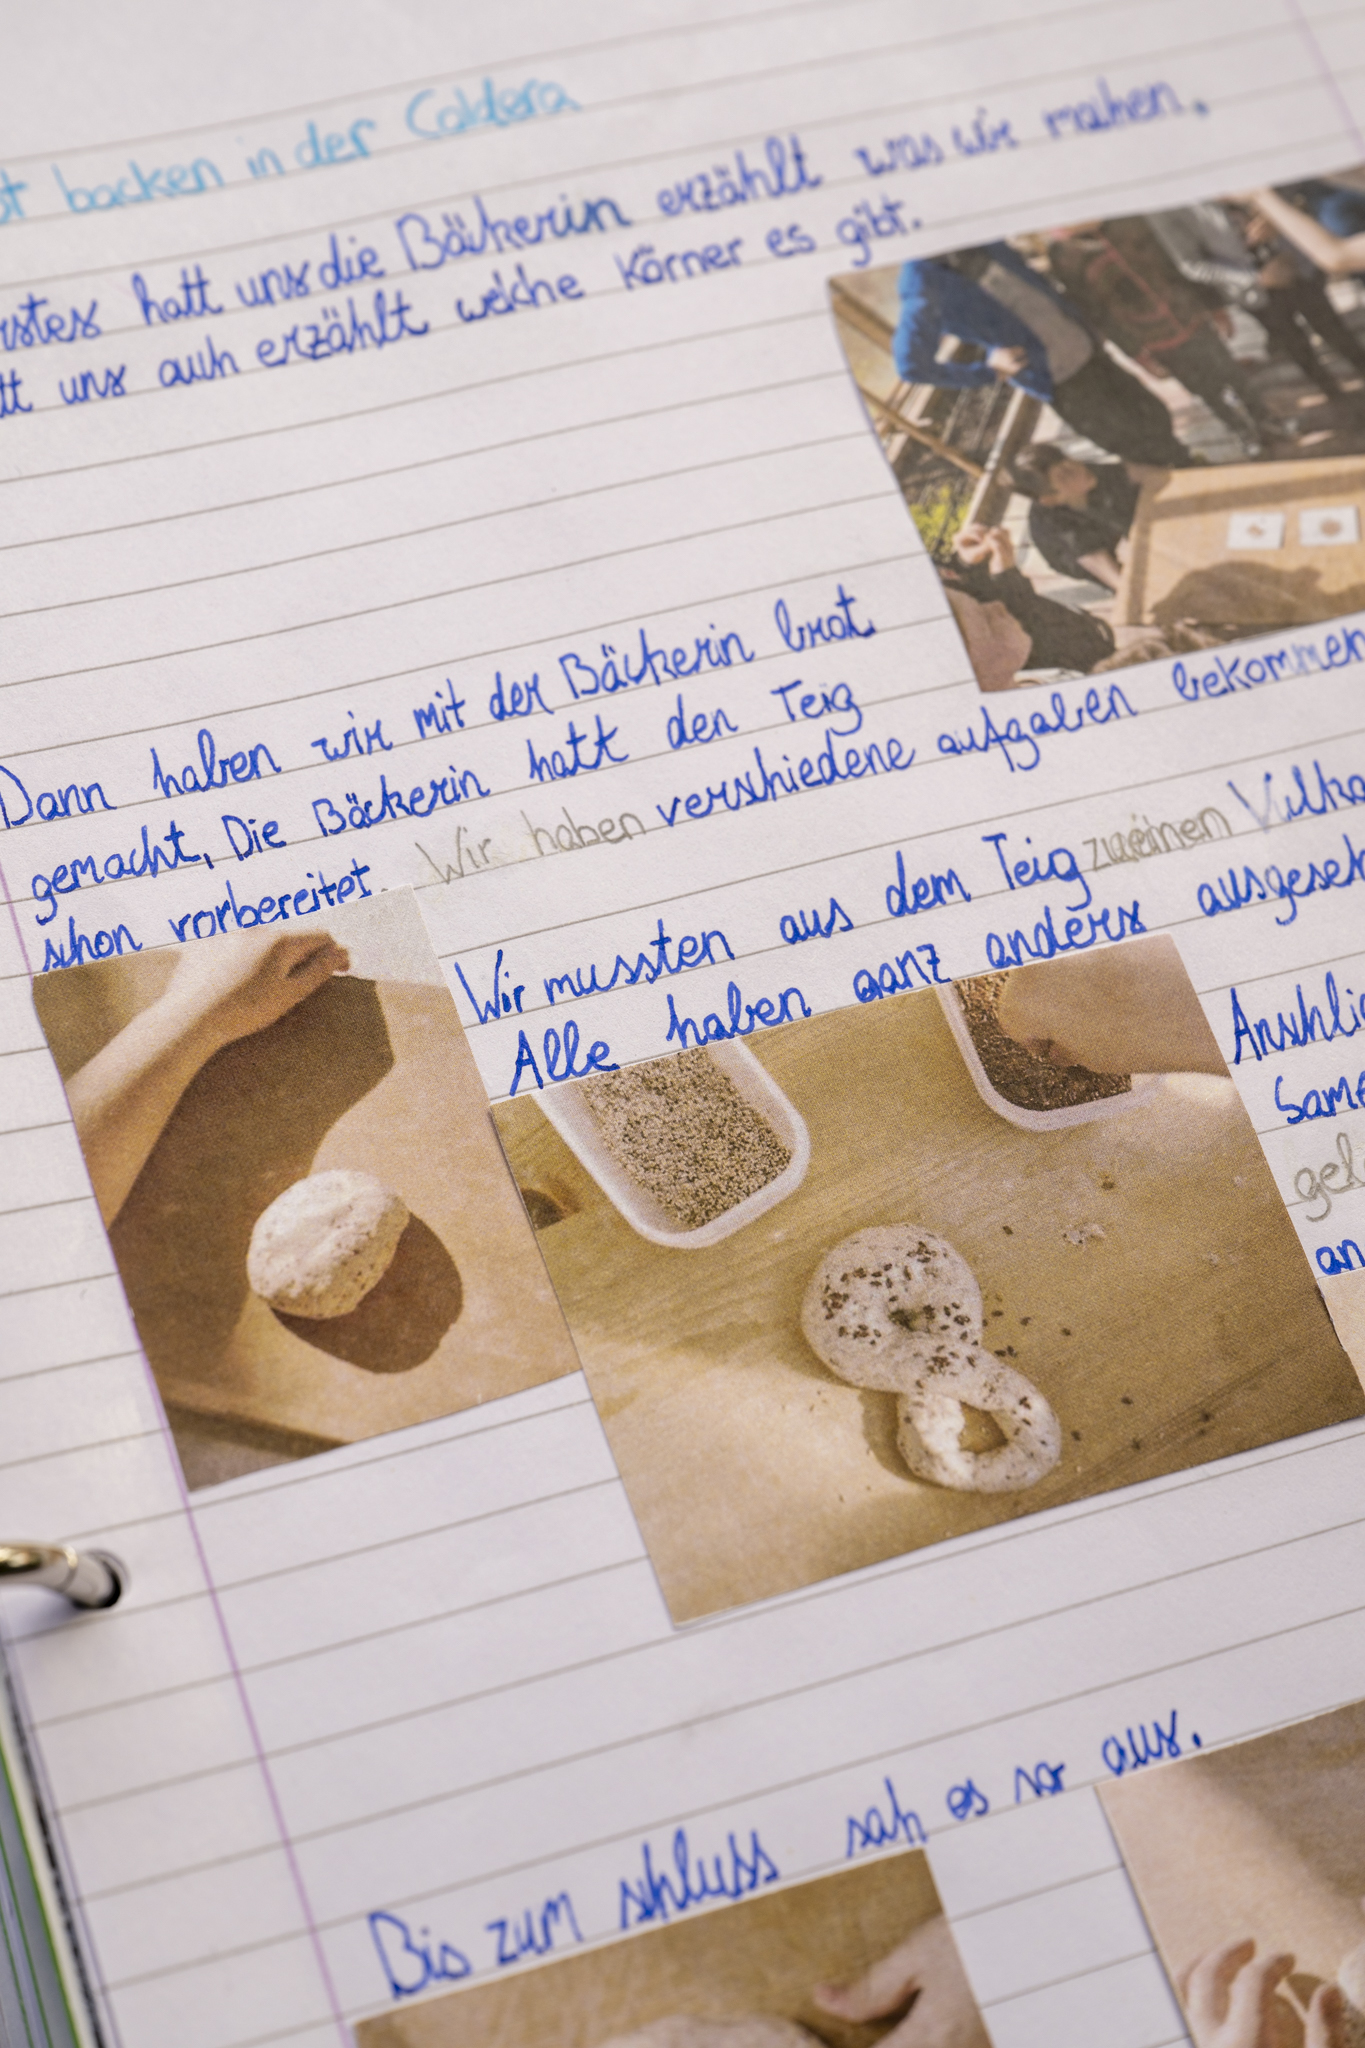 ot backen in der Caldera
rstes hatt uns die Bäckerin erzählt was wir machen.
tt uns auch erzählt welche Körner es gibt.
Dann haben wir mit der Bäckerin brot
gemacht, Die Bäckerin hatt den Teig
schon vorbereitet. Wir haben verschiedene aufgaben bekommen
Wir mussten aus dem Teig zu einen Vulka
Alle haben ganz anders ausgeseh
Anschlie
Same
gel
an
Bis zum schluss sah es so aus.